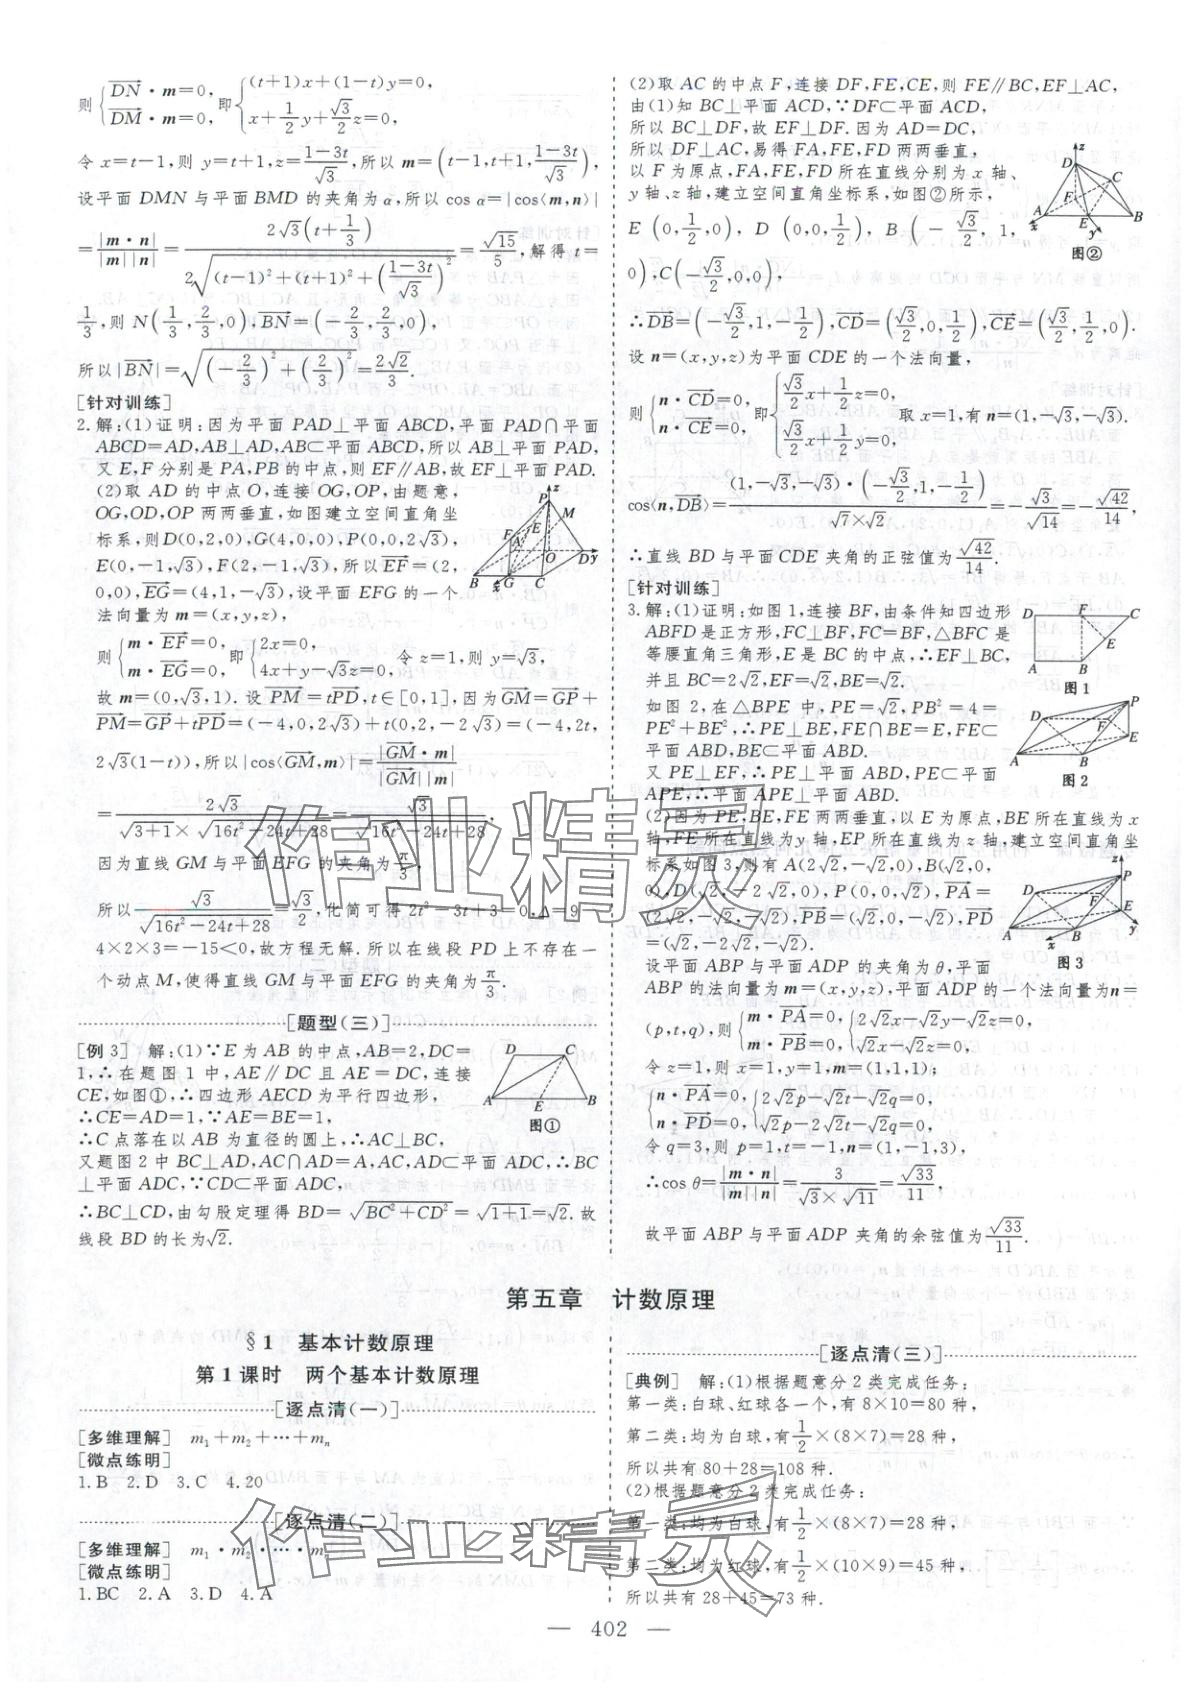 则{DN·m=0, DM·m=0, 即{(t+1)x+(1-t)y=0, x+1/2y+√3/2z=0,
令x=t-1,则 y=t+1,z=(1-3t)/√3,所以 m=(t-1,t+1,(1-3t)/√3),
设平面 DMN 与平面 BMD 的夹角为α,所以 cos α=|cos⟨m,n⟩|
=|m·n|/(|m||n|)=2√3(t+1/3)/(2√((t-1)²+(t+1)²+((1-3t)/√3)²))=√15/5,解得 t=
1/3,则 N(1/3,2/3,0),BN=(-2/3,2/3,0),
所以|BN|=√((-2/3)²+(2/3)²+0²)=2√2/3.
[针对训练]
2.解:(1)证明:因为平面 PAD⊥平面 ABCD,平面 PAD∩平面
ABCD=AD,AB⊥AD,ABC⊏平面 ABCD,所以 AB⊥平面 PAD.
又 E,F 分别是 PA,PB 的中点,则 EF∥AB,故 EF⊥平面 PAD.
(2)取 AD 的中点 O,连接 OG,OP,由题意,
OG,OD,OP 两两垂直,如图建立空间直角坐
标系,则D(0,2,0),G(4,0,0),P(0,0,2√3),
E(0,-1,√3),F(2,-1,√3),所以EF=(2,
0,0),EG=(4,1,-√3),设平面 EFG 的一个
法向量为 m=(x,y,z),
则{m·EF=0, m·EG=0, 即{2x=0, 4x+y-√3z=0, 令 z=1,则 y=√3,
故 m=(0,√3,1).设PM=tPD,t∈[0,1],因为GM=GP+
PM=GP+tPD=(-4,0,2√3)+t(0,2,-2√3)=(-4,2t,
2√3(1-t)),所以|cos⟨GM,m⟩|=|GM·m|/(|GM||m|)
=2√3/(√(3+1)×√(16t²-24t+28))=√3/√(16t²-24t+28),
因为直线 GM 与平面 EFG 的夹角为π/3,
所以√3/√(16t²-24t+28)=√3/2,化简可得2t²-3t+3=0,Δ=9-
4×2×3=-15<0,故方程无解.所以在线段 PD 上不存在一
个动点 M,使得直线 GM 与平面 EFG 的夹角为π/3.
[题型(三)]
[例 3] 解:(1)∵E 为 AB 的中点,AB=2,DC=
1,∴在题图 1 中,AE∥DC 且 AE=DC,连接
CE,如图①,∴四边形 AECD 为平行四边形,
∴CE=AD=1,∵AE=BE=1,
图①
∴C 点落在以 AB 为直径的圆上,∴AC⊥BC,
又题图 2 中 BC⊥AD,AC∩AD=A,AC,AD⊂平面 ADC,∴BC
⊥平面 ADC,∵CD⊂平面 ADC,
∴BC⊥CD,由勾股定理得 BD=√(BC²+CD²)=√(1+1)=√2.故
线段 BD 的长为√2.
(2)取 AC 的中点 F,连接 DF,FE,CE,则 FE∥BC,EF⊥AC,
由(1)知 BC⊥平面 ACD,∵DF⊂平面 ACD,
所以 BC⊥DF,故 EF⊥DF.因为 AD=DC,
所以 DF⊥AC,易得 FA,FE,FD 两两垂直,
以 F 为原点,FA,FE,FD 所在直线分别为 x 轴、
y 轴、z 轴,建立空间直角坐标系,如图②所示,
图②
E(0,1/2,0),D(0,0,1/2),B(-√3/2,1,
0),C(-√3/2,0,0),
∴DB=(-√3/2,1,-1/2),CD=(√3/2,0,1/2),CE=(√3/2,1/2,0).
设 n=(x,y,z)为平面 CDE 的一个法向量,
则{n·CD=0, n·CE=0, 即{√3/2x+1/2z=0, √3/2x+1/2y=0, 取 x=1,有 n=(1,-√3,-√3).
cos⟨n,DB⟩=(1,-√3,-√3)·(-√3/2,1,-1/2)/(√7×√2)=-√3/√14=-√42/14,
∴直线 BD 与平面 CDE 夹角的正弦值为√42/14.
[针对训练]
3.解:(1)证明:如图 1,连接 BF,由条件知四边形
ABFD 是正方形,FC⊥BF,FC=BF,△BFC 是
等腰直角三角形,E 是 BC 的中点,∴EF⊥BC,
并且 BC=2√2,EF=√2,BE=√2.
图 1
如图 2,在△BPE 中,PE=√2,PB²=4=
PE²+BE²,∴PE⊥BE,FE∩BE=E,FE⊂
平面 ABD,BE⊂平面 ABD.
又 PE⊥EF,∴PE⊥平面 ABD,PE⊂平面
APE,∴平面 APE⊥平面 ABD.
图 2
(2)因为 PE,BE,FE 两两垂直,以 E 为原点,BE 所在直线为 x
轴,FE 所在直线为 y 轴,EP 所在直线为 z 轴,建立空间直角坐
标系如图 3,则有 A(2√2,-√2,0),B(√2,0,
0),D(√2,-2√2,0),P(0,0,√2),PA=
(2√2,-√2,-√2),PB=(√2,0,-√2),PD
=(√2,-2√2,-√2).
图 3
设平面 ABP 与平面 ADP 的夹角为θ,平面
ABP 的法向量为 m=(x,y,z),平面 ADP 的一个法向量为n=
(p,t,q),则{m·PA=0, m·PB=0, {2√2x-√2y-√2z=0, √2x-√2z=0,
令 z=1,则 x=1,y=1,m=(1,1,1);
{n·PA=0, n·PD=0, {2√2p-√2t-√2q=0, √2p-2√2t-√2q=0,
令 q=3,则 p=1,t=-1,n=(1,-1,3),
∴cos θ=|m·n|/(|m||n|)=3/(√3×√11)=√33/11,
故平面 ABP 与平面 ADP 夹角的余弦值为√33/11.
第五章 计数原理
§1 基本计数原理
第 1 课时 两个基本计数原理
[逐点清(一)]
[多维理解] m₁+m₂+…+mₙ
[微点练明]
1.B 2.D 3.C 4.20
[逐点清(二)]
[多维理解] m₁·m₂·…·mₙ
[微点练明]
1.BC 2.A 3.D 4.A
[逐点清(三)]
[典例] 解:(1)根据题意分 2 类完成任务:
第一类:白球、红球各一个,有 8×10=80 种,
第二类:均为白球,有1/2×(8×7)=28 种,
所以共有 80+28=108 种.
(2)根据题意分 2 类完成任务:
第一类:均为白球,有1/2×(8×7)=28 种,
第二类:均为红球,有1/2×(10×9)=45 种,
所以共有 28+45=73 种.
402
作业精灵
作业精灵